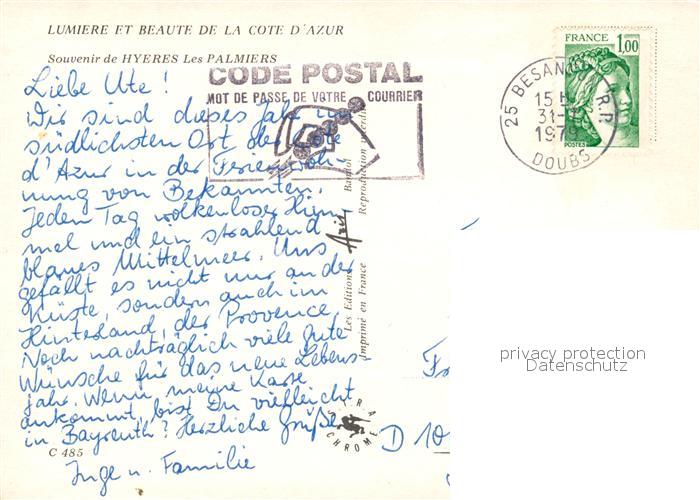 LUMIERE ET BEAUTE DE LA COTE D'AZUR
Souvenir de HYERES Les PALMIERS
CODE POSTAL
MOT DE PASSE DE VOTRE COURRIER
FRANCE
1,00
POSTES
25 BESANÇON R.P.
15 H
31-
1978
DOUBS
Liebe Ute!
Wir sind dieses Jahr im
südlichsten Ort der Côte
d'Azur in der Ferienwoh-
nung von Bekannten.
Jeden Tag wolkenloser Him-
mel und ein strahlend
blaues Mittelmeer. Uns
gefällt es nicht nur an der
Küste, sondern auch im
Hinterland, der Provence.
Noch nachträglich viele gute
Wünsche für das neue Lebens-
jahr. Wenn meine Karte
ankommt, bist Du vielleicht
in Bayreuth? Herzliche Grüße
Inge u. Familie
C 485
Les Editions
Imprimé en France
Reproduction interdite
Fr
D 10
privacy protection
Datenschutz